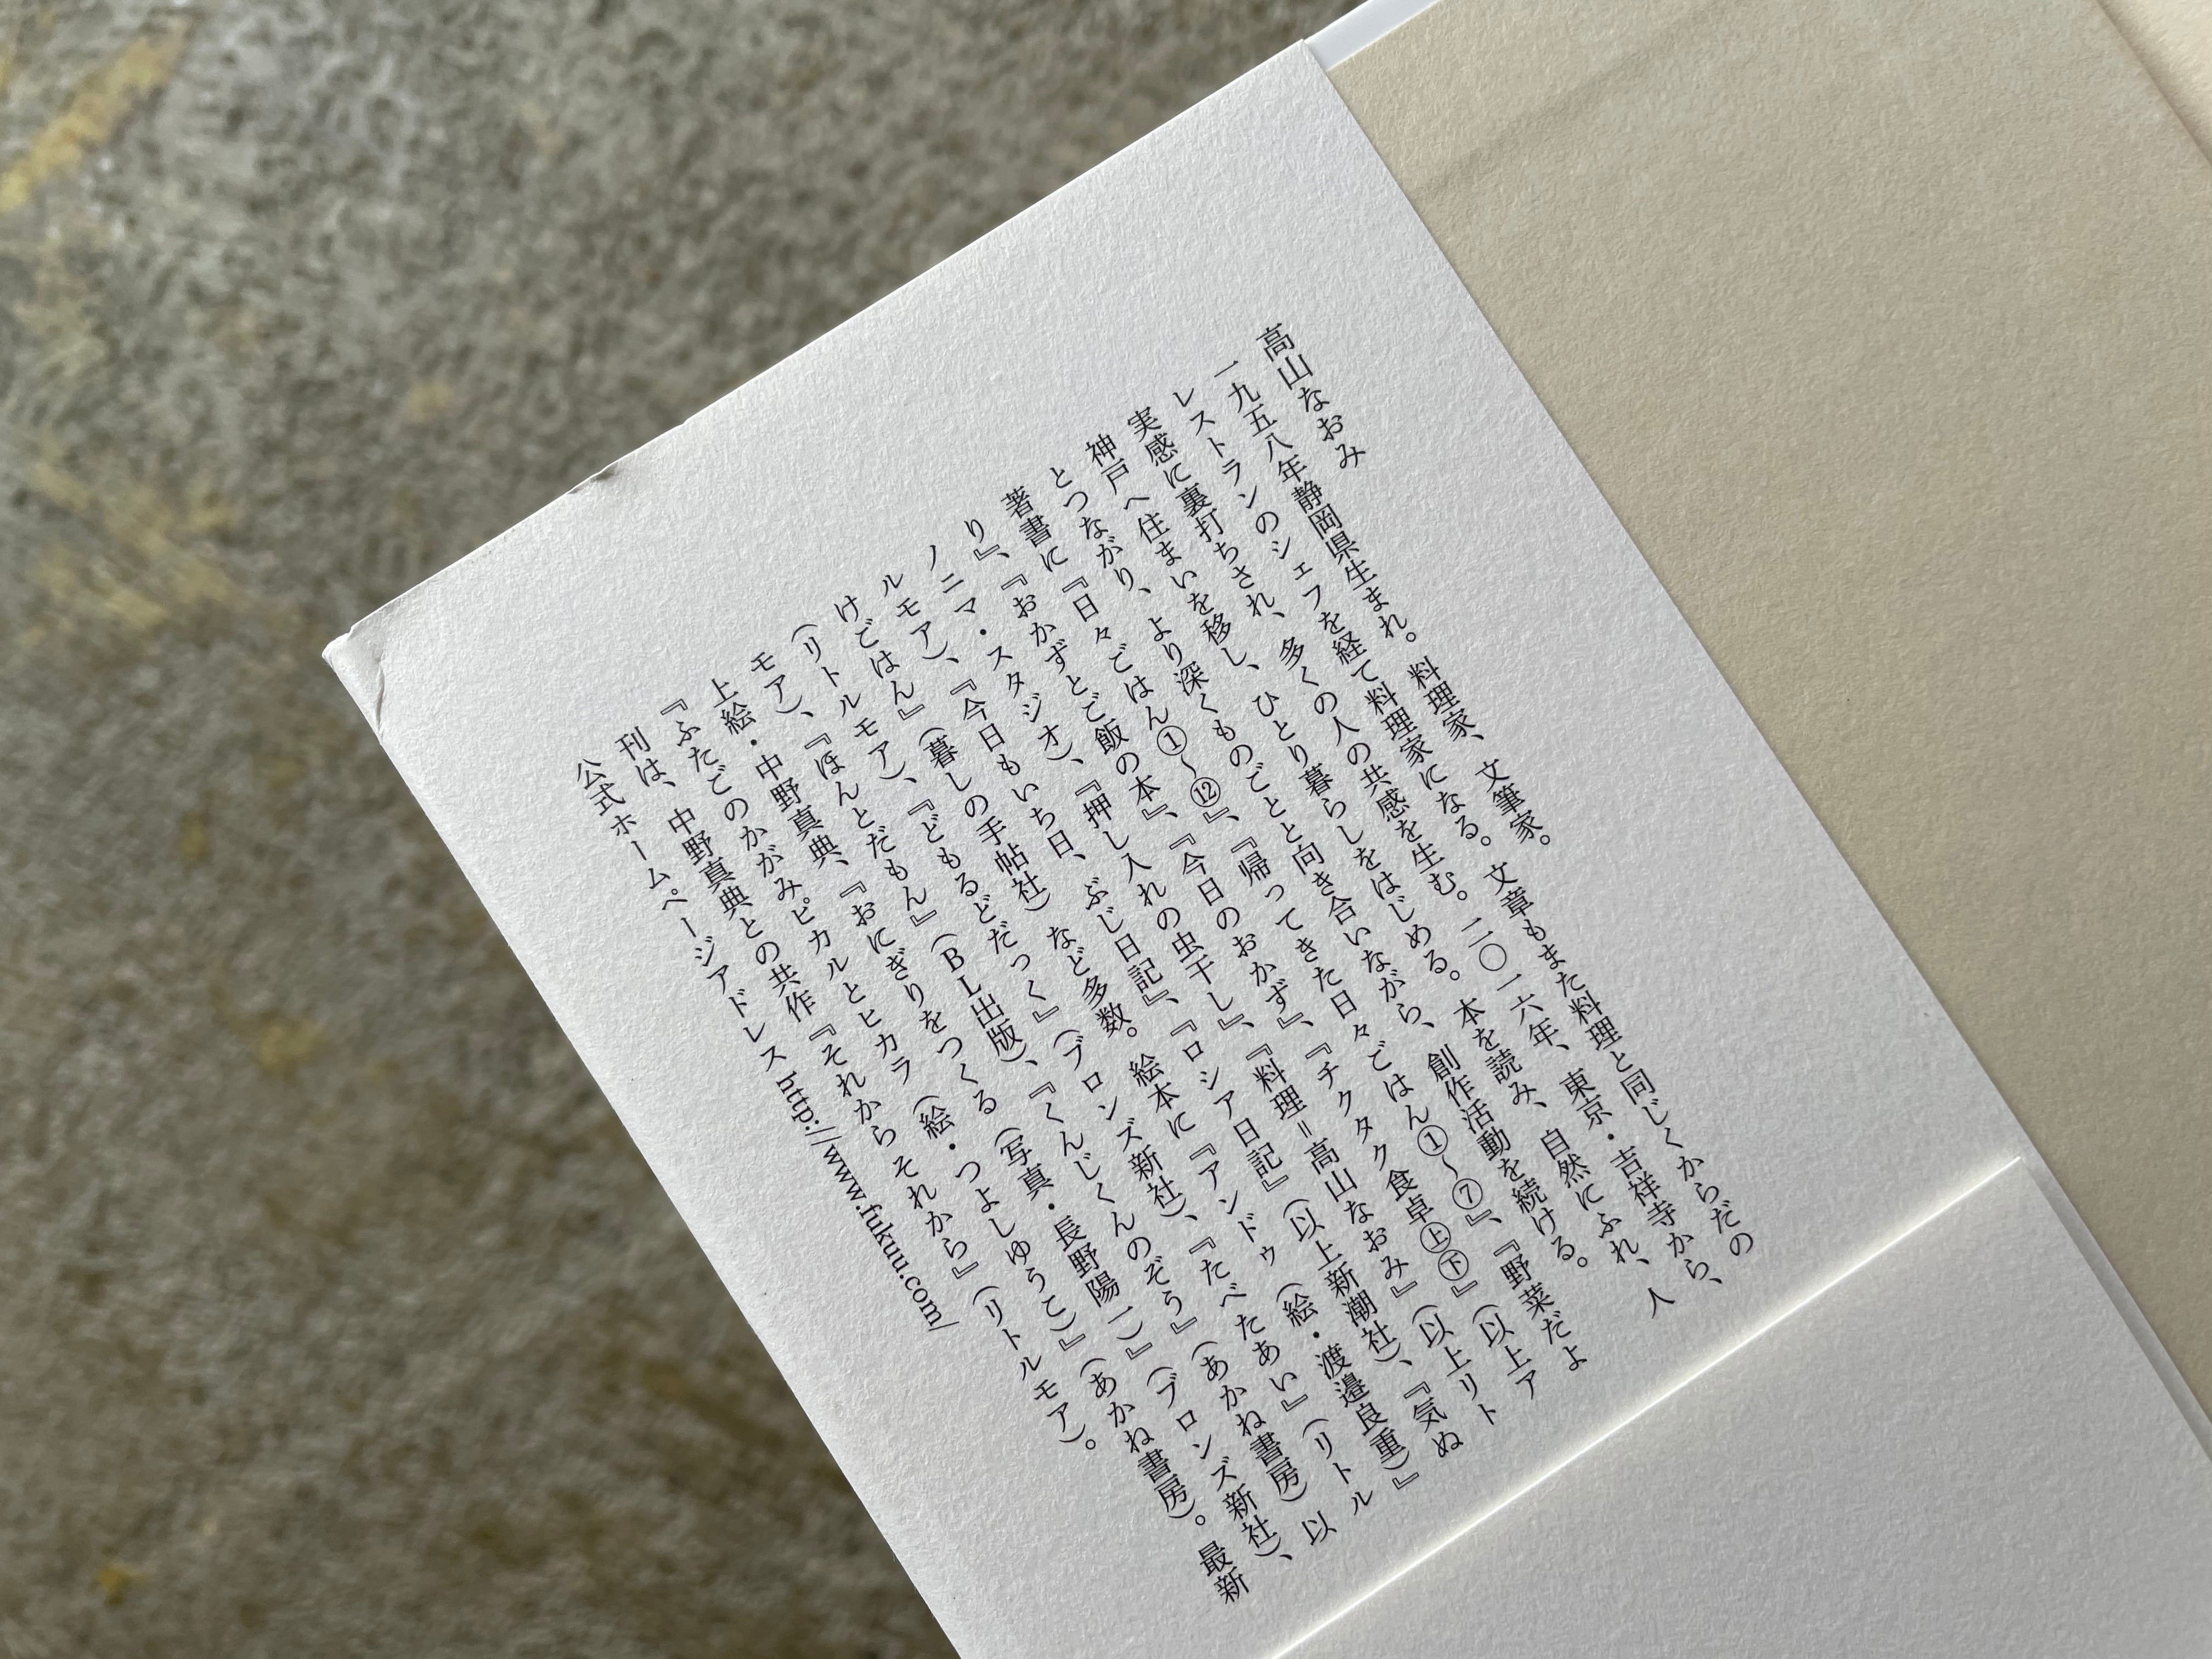 高山なおみ
一九五八年静岡県生まれ。料理家、文筆家。
レストランのシェフを経て料理家になる。文章もまた料理と同じくからだの
実感に裏打ちされ、多くの人の共感を生む。二〇一六年、東京・吉祥寺から、
神戸へ住まいを移し、ひとり暮らしをはじめる。本を読み、自然にふれ、人
とつながり、より深くものごとと向き合いながら、創作活動を続ける。
著書に『日々ごはん①〜⑫』、『帰ってきた日々ごはん①〜⑦』、『野菜だよ
り』、『おかずとご飯の本』、『今日のおかず』、『チクタク食卓㊤㊦』（以上ア
ノニマ・スタジオ）、『押し入れの虫干し』、『料理＝高山なおみ』（以上リト
ルモア）、『今日もいち日、ぶじ日記』、『ロシア日記』（以上新潮社）、『気ぬ
けごはん』（暮しの手帖社）など多数。絵本に『アンドゥ（絵・渡邉良重）』
（リトルモア）、『どもるどだっく』（ブロンズ新社）、『たべたあい』（リトル
モア）、『ほんとだもん』（BL出版）、『くんじくんのぞう』（あかね書房）以
上絵・中野真典、『おにぎりをつくる（写真・長野陽一）』（ブロンズ新社）、
『ふたごのかがみ ピカルとヒカラ（絵・つよしゆうこ）』（あかね書房）。最新
刊は、中野真典との共作『それから それから』（リトルモア）。
公式ホームページアドレス http://www.fukuu.com/